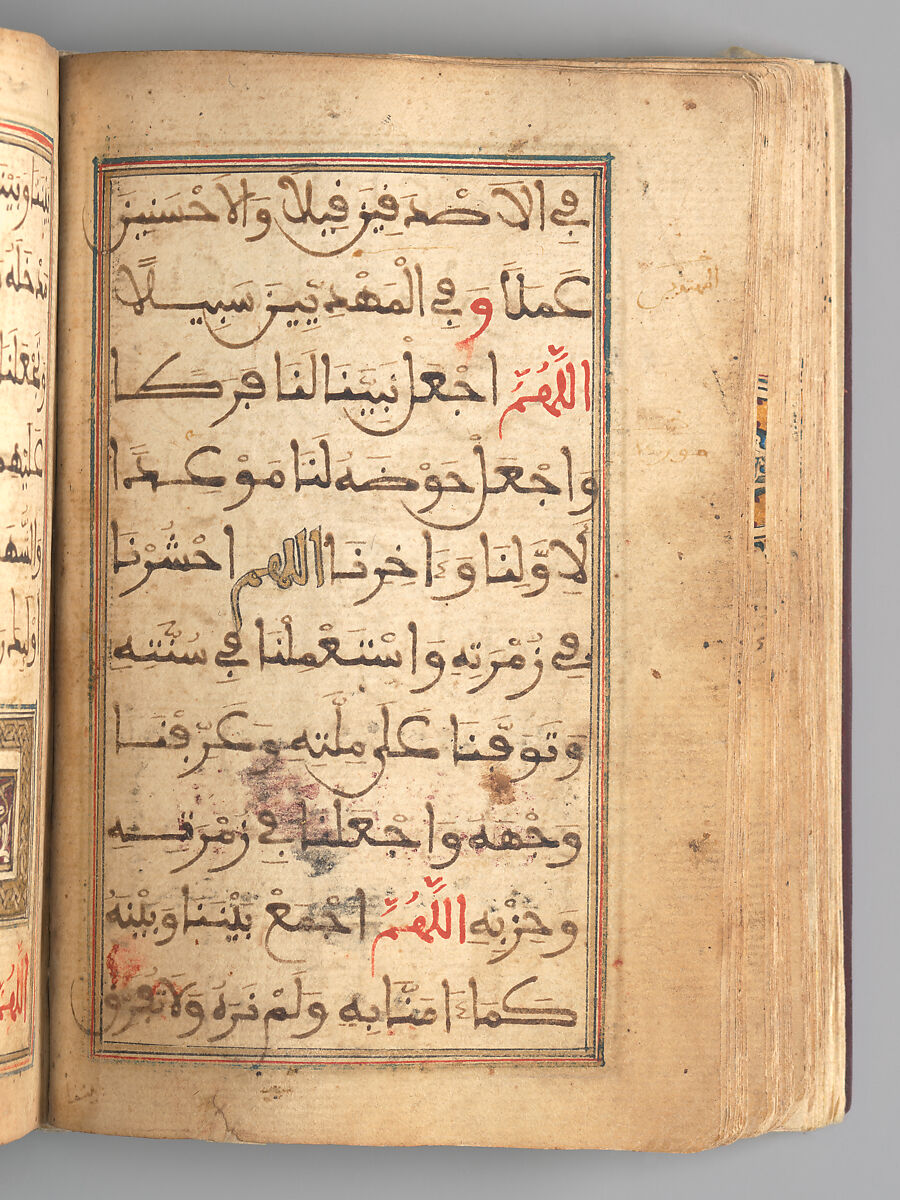 في الاصدقين قيلا والاحسنين
عملا و في المهديين سبيلا
اللهم اجعل نبينا لنا فرطا
واجعل حوضه لنا موعدا
لأولنا وءاخرنا اللهم احشرنا
في زمرته واستعملنا في سنته
وتوفنا على ملته وعرفنا
وجهه واجعلنا في زمرته
وحزبه اللهم اجمع بيننا وبينه
كما ءامنا به ولم نره ولا تفرق